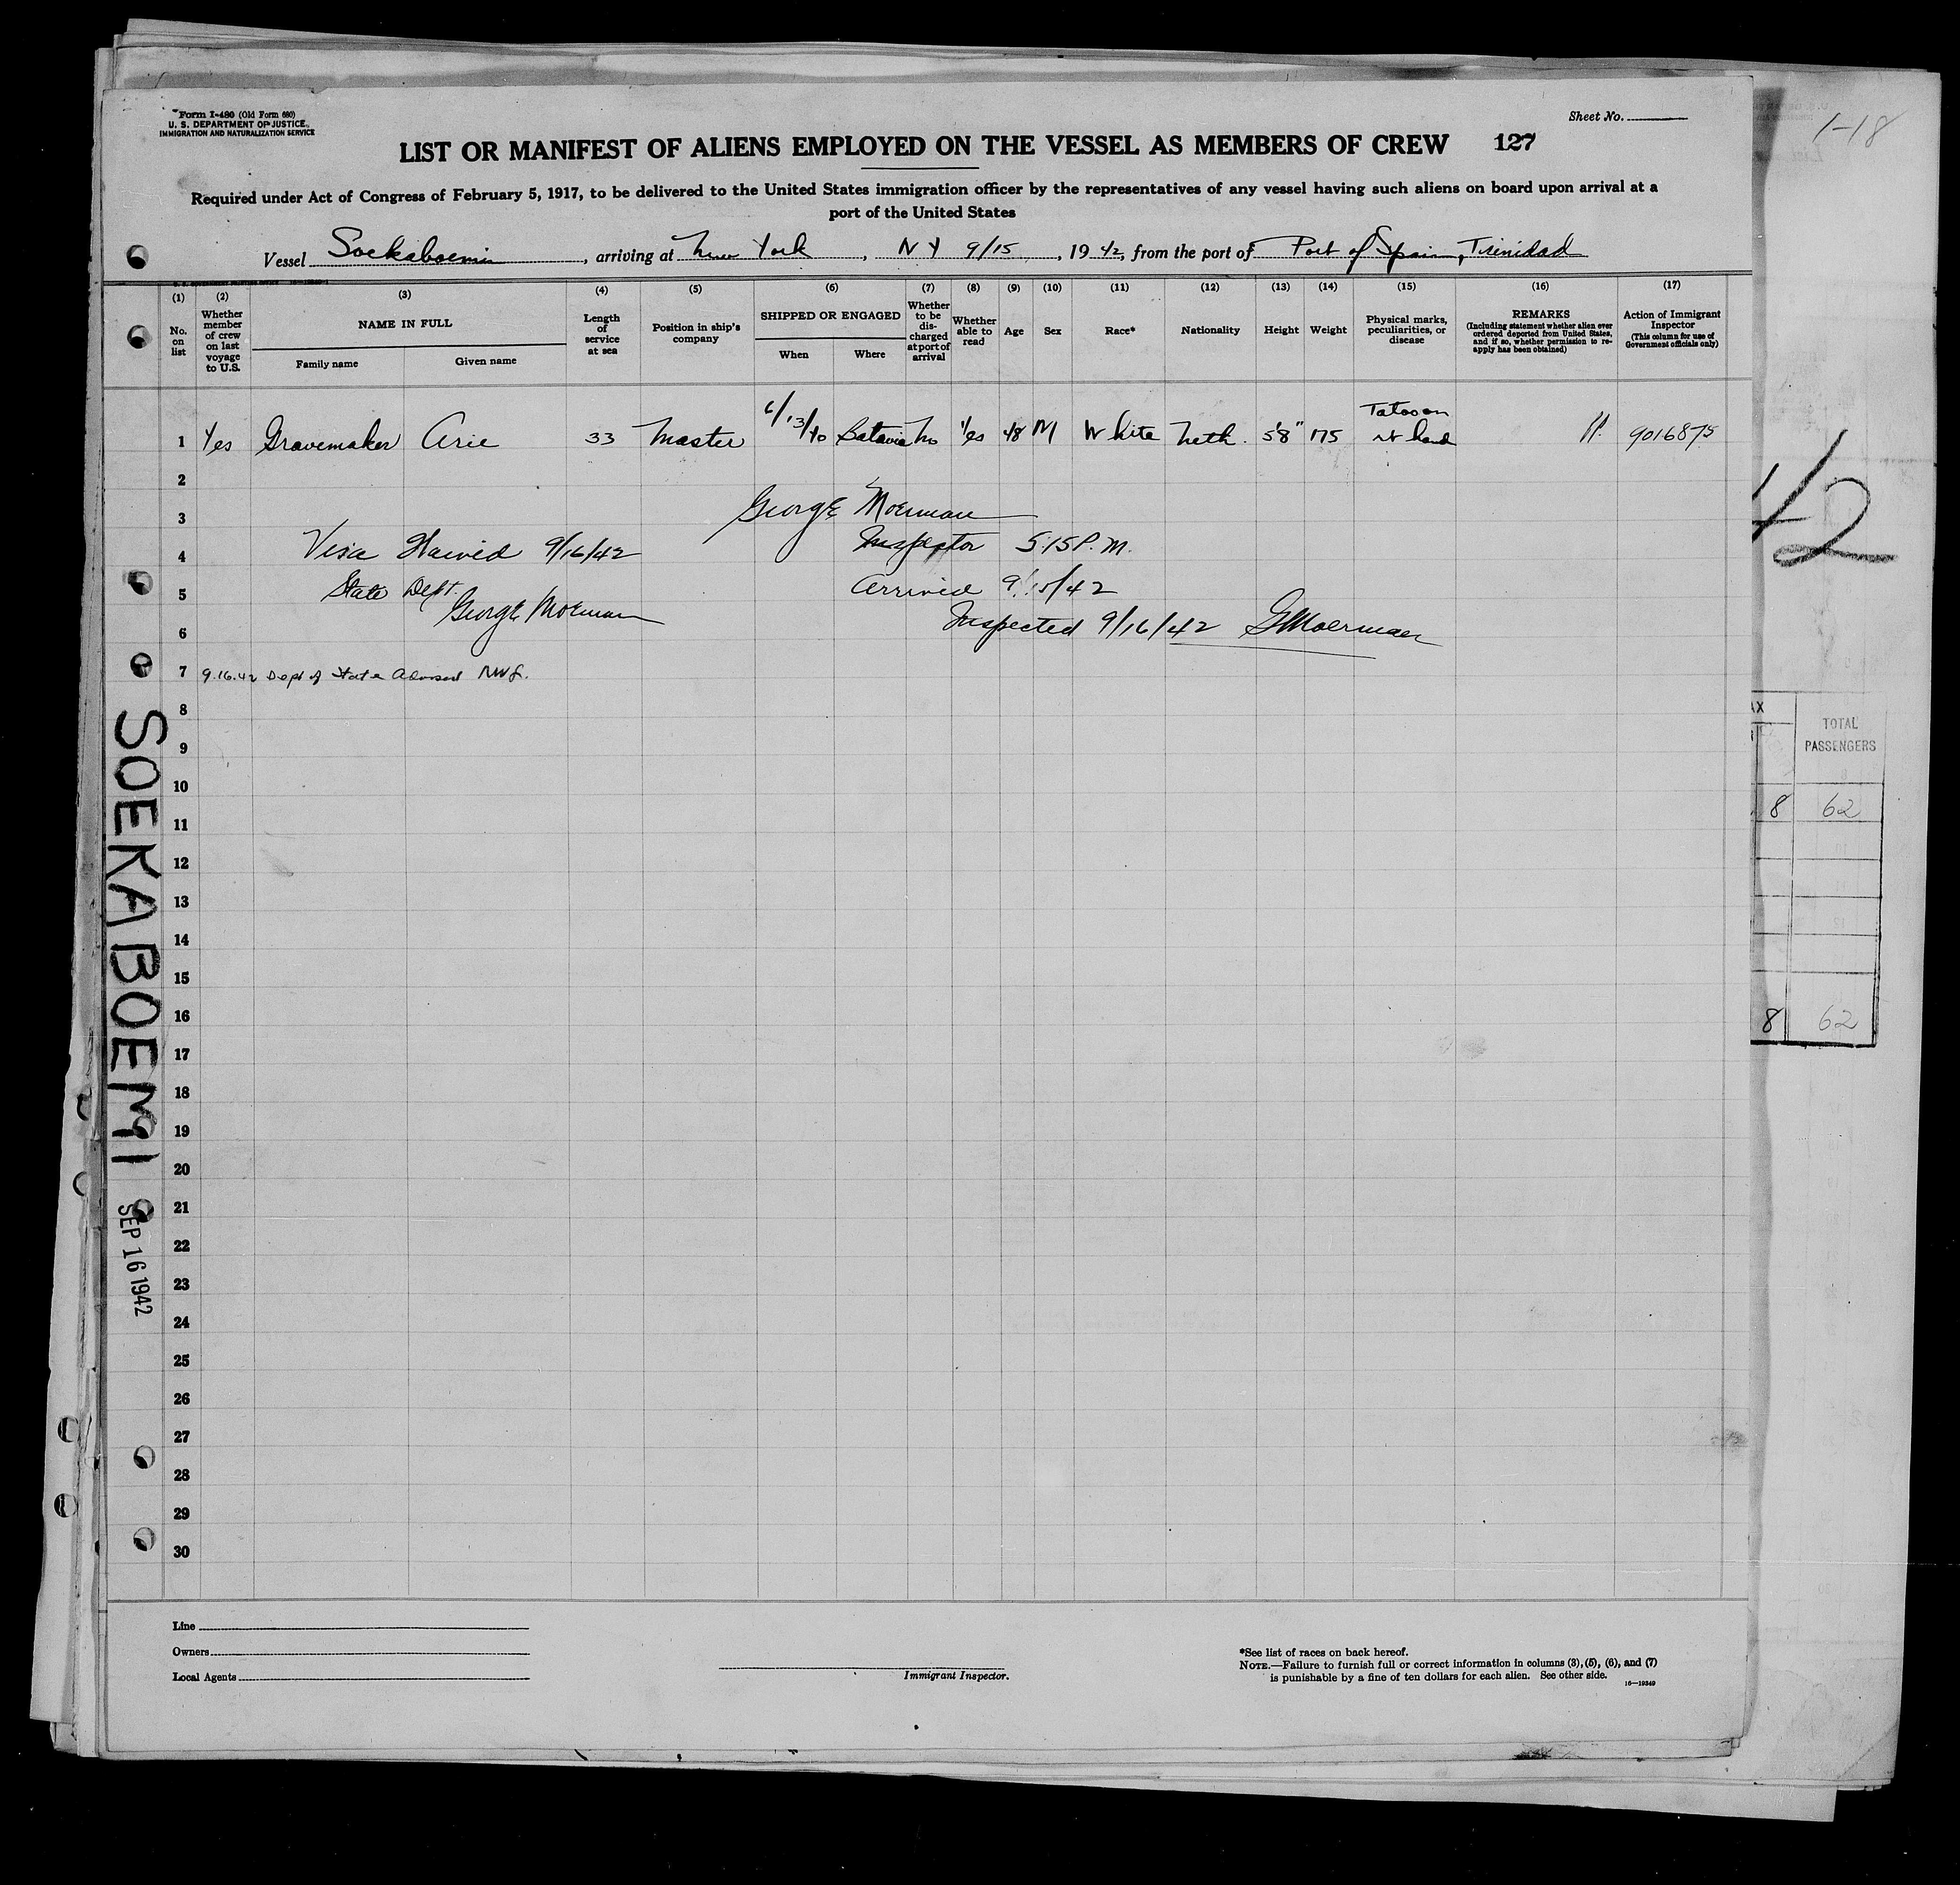 Form I-480 (Old Form 680)
U. S. DEPARTMENT OF JUSTICE
IMMIGRATION AND NATURALIZATION SERVICE
Sheet No.
1-18
LIST OR MANIFEST OF ALIENS EMPLOYED ON THE VESSEL AS MEMBERS OF CREW 127
Required under Act of Congress of February 5, 1917, to be delivered to the United States immigration officer by the representatives of any vessel having such aliens on board upon arrival at a
port of the United States
Vessel Soekaboemi, arriving at New York, NY 9/15, 1942, from the port of Port of Spain, Trinidad
(1) (2) (3) (4) (5) (6) (7) (8) (9) (10) (11) (12) (13) (14) (15) (16) (17)
No. on list
Whether member of crew on last voyage to U.S.
NAME IN FULL
Family name Given name
Length of service at sea
Position in ship's company
SHIPPED OR ENGAGED
When Where
Whether to be discharged at port of arrival
Whether able to read
Age
Sex
Race*
Nationality
Height
Weight
Physical marks, peculiarities, or disease
REMARKS
(Including statement whether alien ever ordered deported from United States, and if so, whether permission to reapply has been obtained)
Action of Immigrant Inspector
(This column for use of Government officials only)
1 Yes Gravemaker Arie 33 Master 6/13/40 Batavia No Yes 48 M White Neth. 5'8" 175 Tatoo on rt hand 9016875
2
3 George Moerman
4 Visa Waived 9/16/42 Inspector 5:15 P.M.
5 State Dept. Arrived 9/15/42
George Moerman
6 Inspected 9/16/42 GMoerman
7 9.16.42 Dept of State Advised
8
9
10
11
12
13
14
15
16
17
18
19
20
21
22
23
24
25
26
27
28
29
30
SOEKABOEMI
SEP 16 1942
42
TOTAL
PASSENGERS
8 62
8 62
Line
Owners
Local Agents
Immigrant Inspector.
*See list of races on back hereof.
NOTE.—Failure to furnish full or correct information in columns (3), (5), (6), and (7)
is punishable by a fine of ten dollars for each alien. See other side.
16—19349